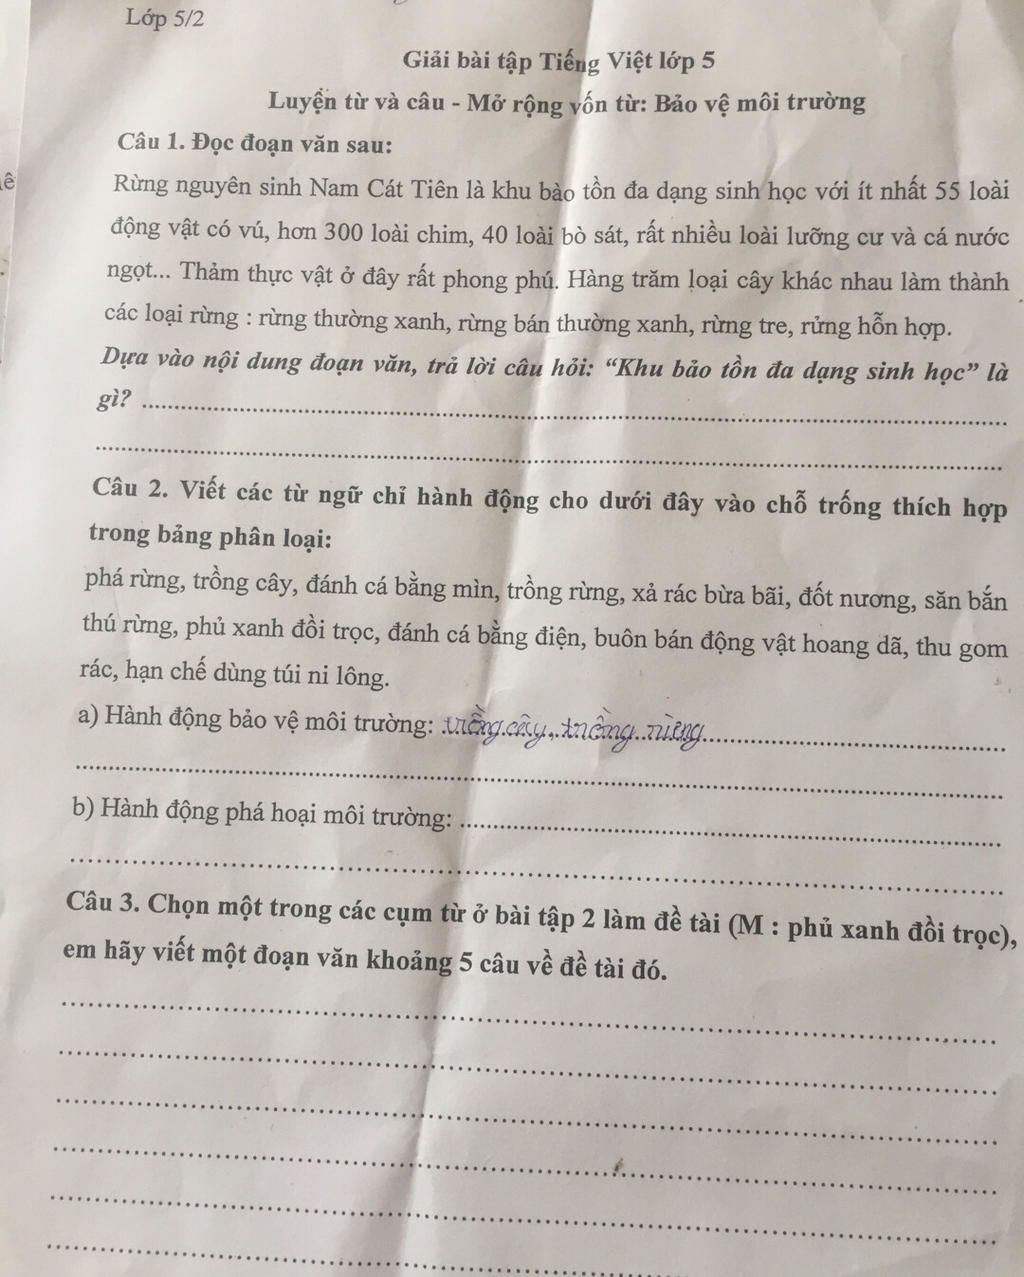 Lớp 5/2
Giải bài tập Tiếng Việt lớp 5
Luyện từ và câu - Mở rộng vốn từ: Bảo vệ môi trường
Câu 1. Đọc đoạn văn sau:
Rừng nguyên sinh Nam Cát Tiên là khu bào tồn đa dạng sinh học với ít nhất 55 loài
động vật có vú, hơn 300 loài chim, 40 loài bò sát, rất nhiều loài lưỡng cư và cá nước
ngọt... Thảm thực vật ở đây rất phong phú. Hàng trăm loại cây khác nhau làm thành
các loại rừng : rừng thường xanh, rừng bán thường xanh, rừng tre, rửng hỗn hợp.
Dựa vào nội dung đoạn văn, trả lời câu hỏi: “Khu bảo tồn đa dạng sinh học” là
gì? ........................................................................
........................................................................
Câu 2. Viết các từ ngữ chỉ hành động cho dưới đây vào chỗ trống thích hợp
trong bảng phân loại:
phá rừng, trồng cây, đánh cá bằng mìn, trồng rừng, xả rác bừa bãi, đốt nương, săn bắn
thú rừng, phủ xanh đồi trọc, đánh cá bằng điện, buôn bán động vật hoang dã, thu gom
rác, hạn chế dùng túi ni lông.
a) Hành động bảo vệ môi trường: trồng cây, trồng rừng........................
........................................................................
b) Hành động phá hoại môi trường: ........................................
........................................................................
Câu 3. Chọn một trong các cụm từ ở bài tập 2 làm đề tài (M : phủ xanh đồi trọc),
em hãy viết một đoạn văn khoảng 5 câu về đề tài đó.
........................................................................
........................................................................
........................................................................
........................................................................
........................................................................
........................................................................